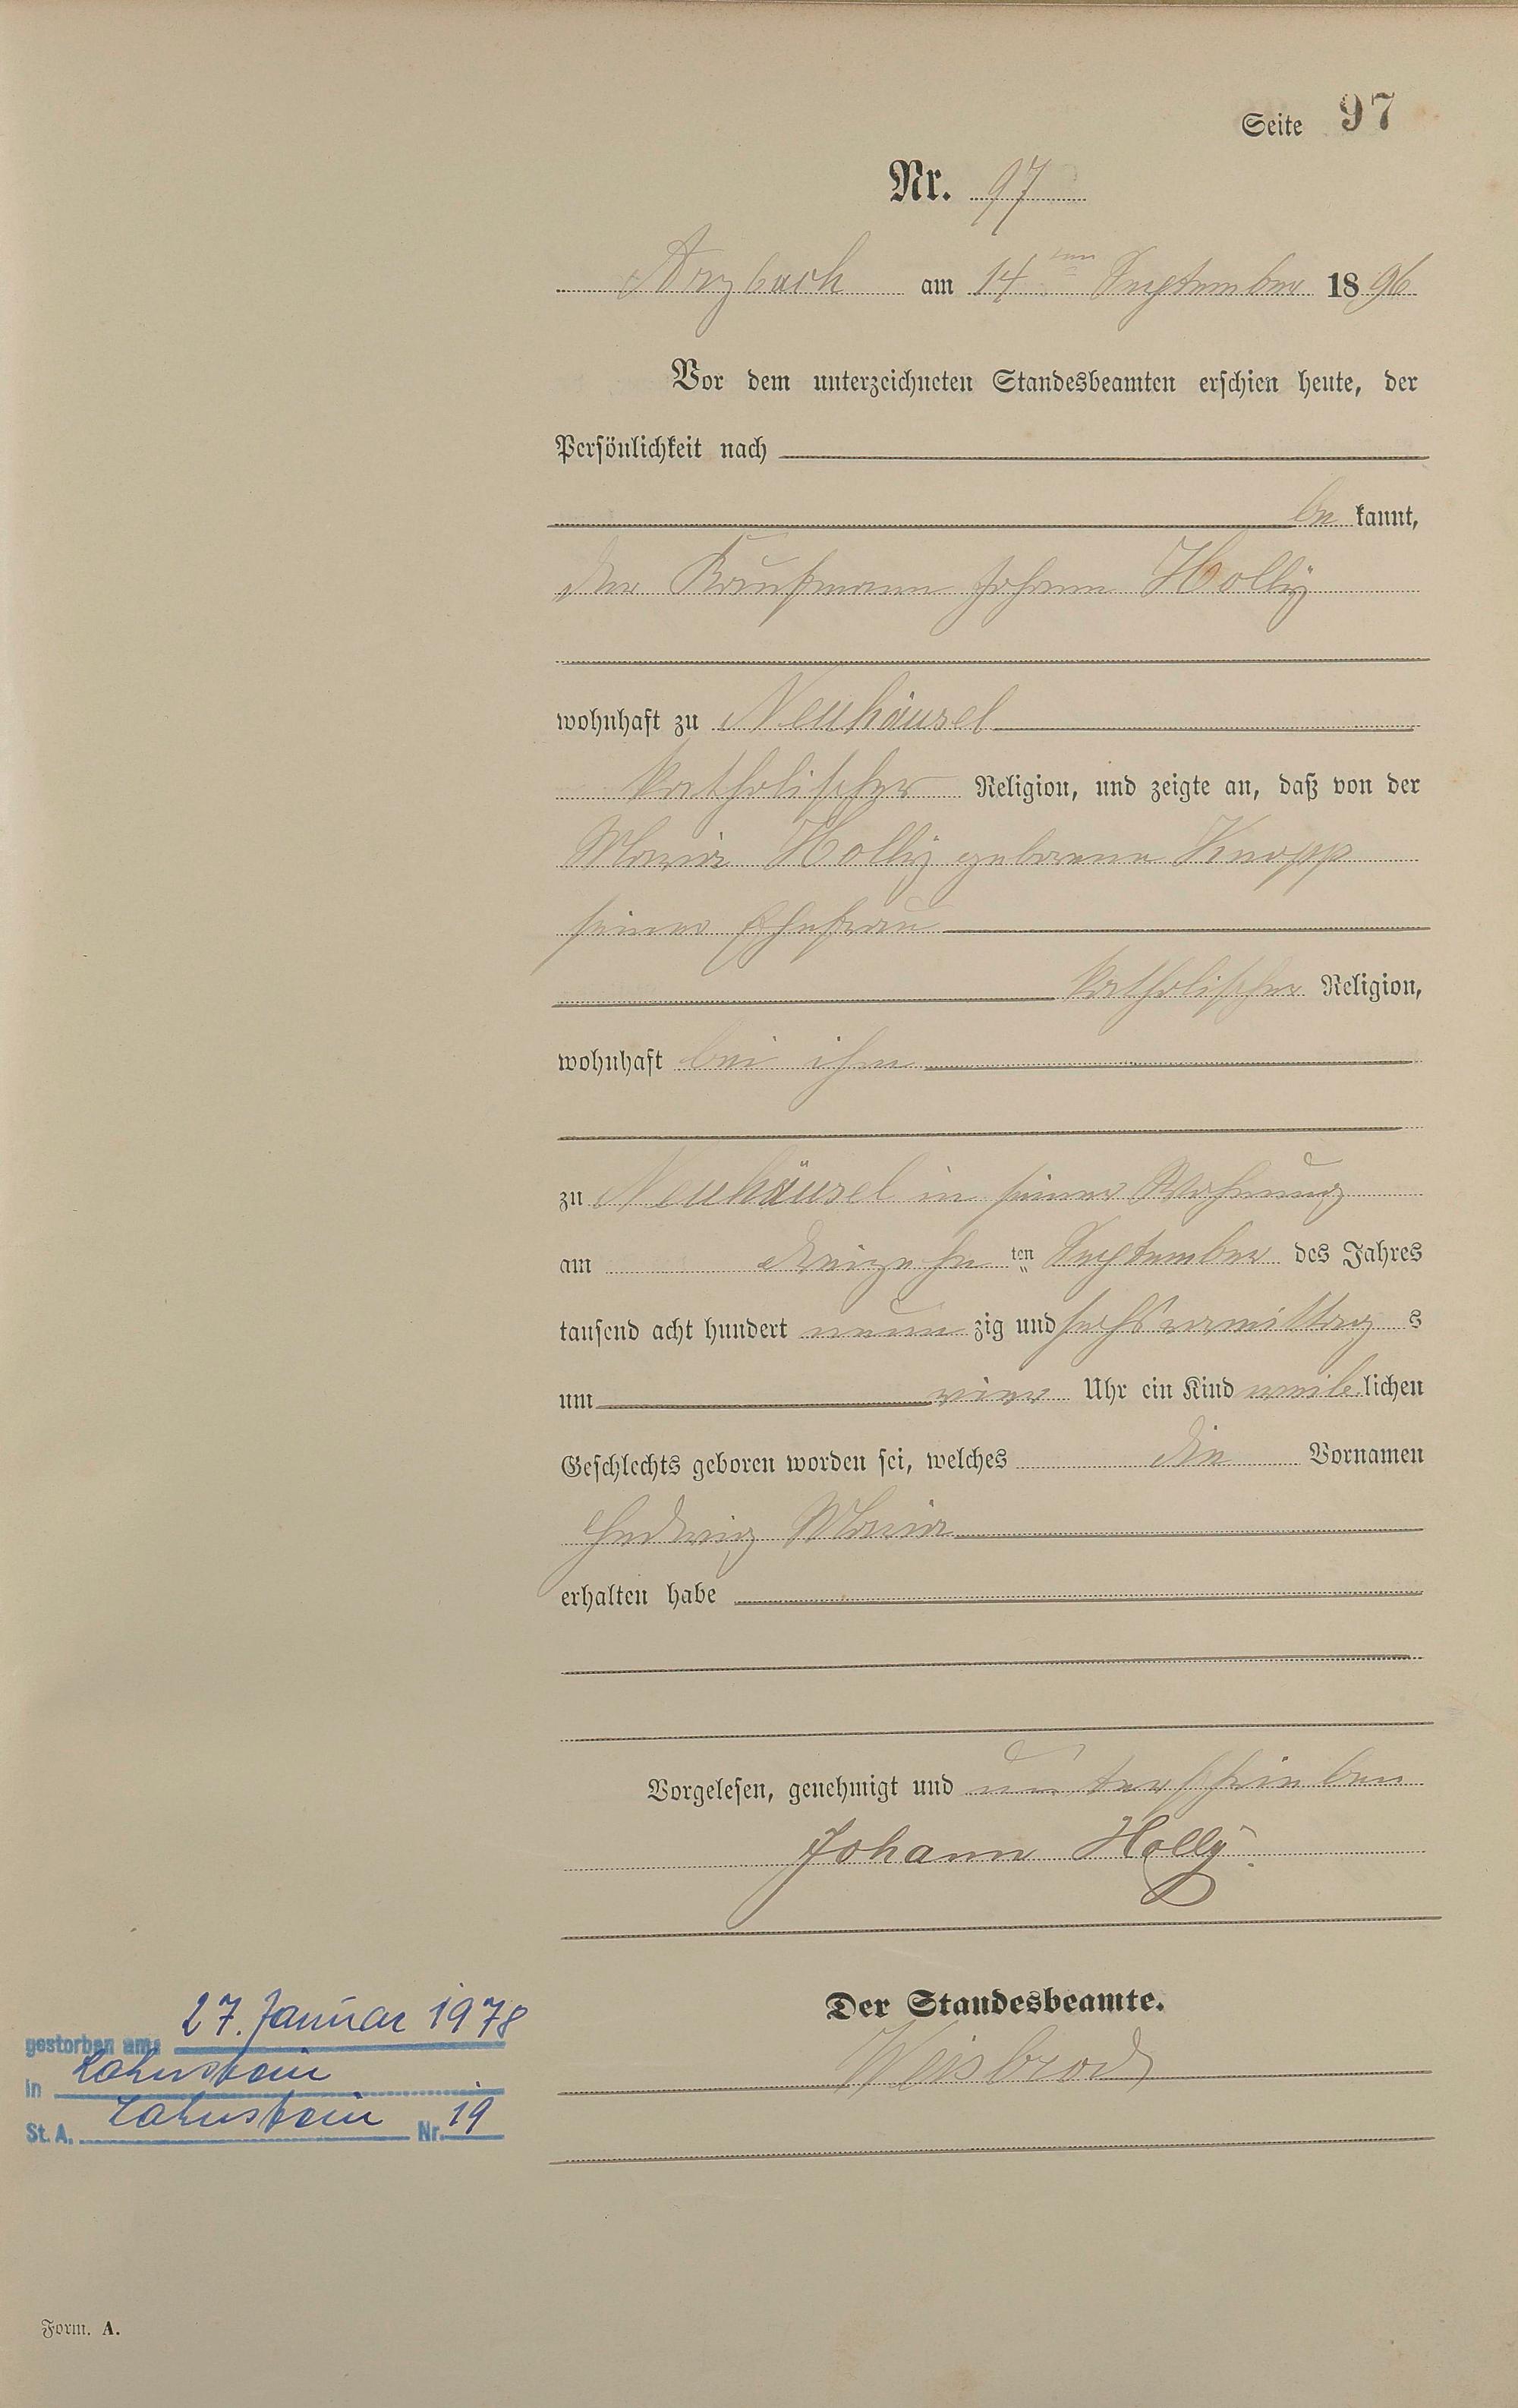 Seite 97
Nr. 97
Arzbach am 14ten September 1896
Vor dem unterzeichneten Standesbeamten erschien heute, der
Persönlichkeit nach
be kannt,
der Kaufmann Johann Holly
wohnhaft zu Neuhäusel
katholischer Religion, und zeigte an, daß von der
Maria Holly geborene Knopp
seiner Ehefrau
katholischer Religion,
wohnhaft bei ihm
zu Neuhäusel in seiner Wohnung
am dreizehnten September des Jahres
tausend acht hundert neun zig und sechs vormittags
um vier Uhr ein Kind weiblichen
Geschlechts geboren worden sei, welches die Vornamen
Hedwig Maria
erhalten habe
Vorgelesen, genehmigt und unterschrieben
Johann Holly.
Der Standesbeamte.
Weisbrod
gestorben am: 27. Januar 1978
in Lahnstein
St. A. Lahnstein Nr. 19
Form. A.